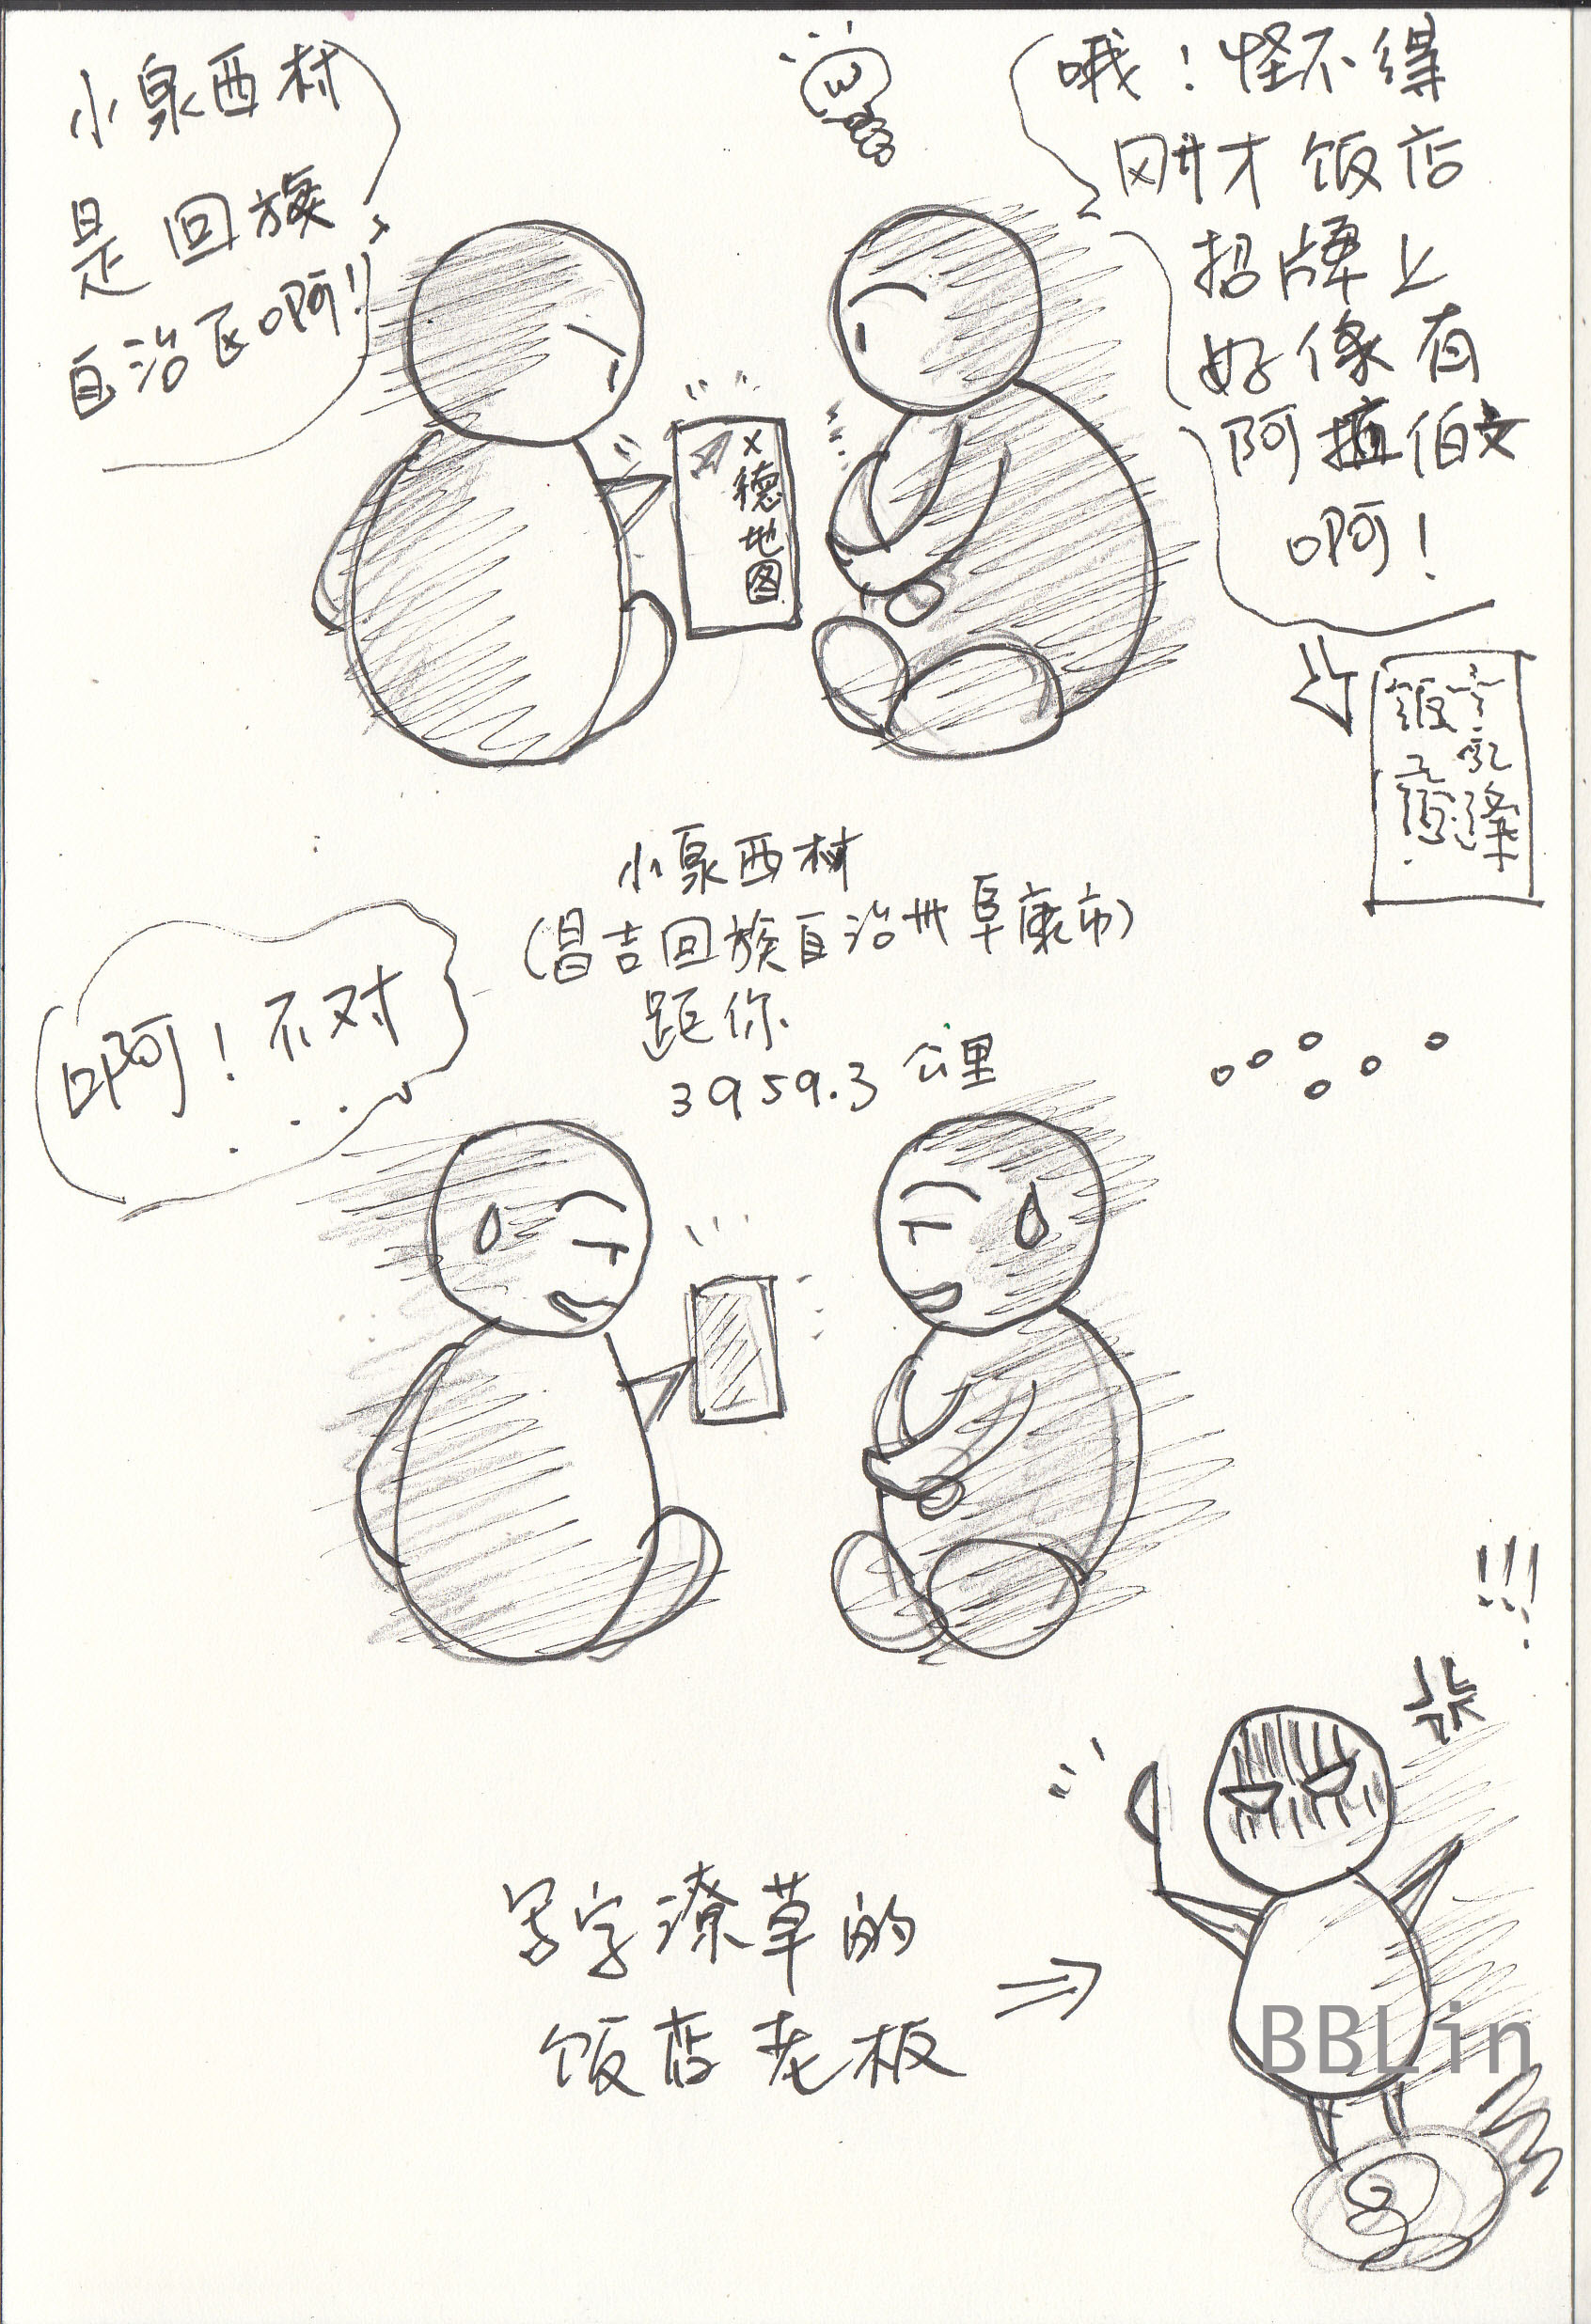 小泉西村
是回族
自治区啊!!
哦！怪不得
刚才饭店
招牌上
好像有
阿拉伯文
啊！
X德地图
小泉西村
(昌吉回族自治州阜康市)
距你
3959.3公里
啊！不对
...
!!!
写字潦草的
饭店老板
BBLin